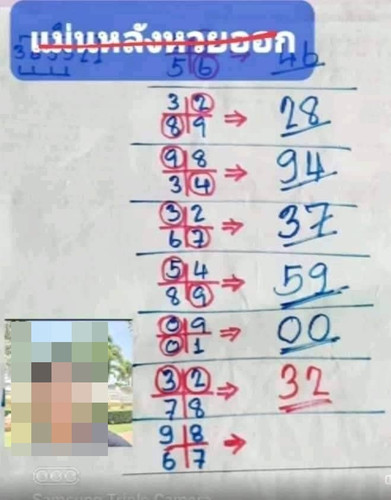 แม่นหลังหวยออก
5 6 ⇒ 46
3 2
8 9 ⇒ 28
9 8
3 4 ⇒ 94
3 2
6 7 ⇒ 37
5 4
8 9 ⇒ 59
0 9
0 1 ⇒ 00
3 2
7 8 ⇒ 32
9 8
6 7 ⇒
Samsung Triple Camera